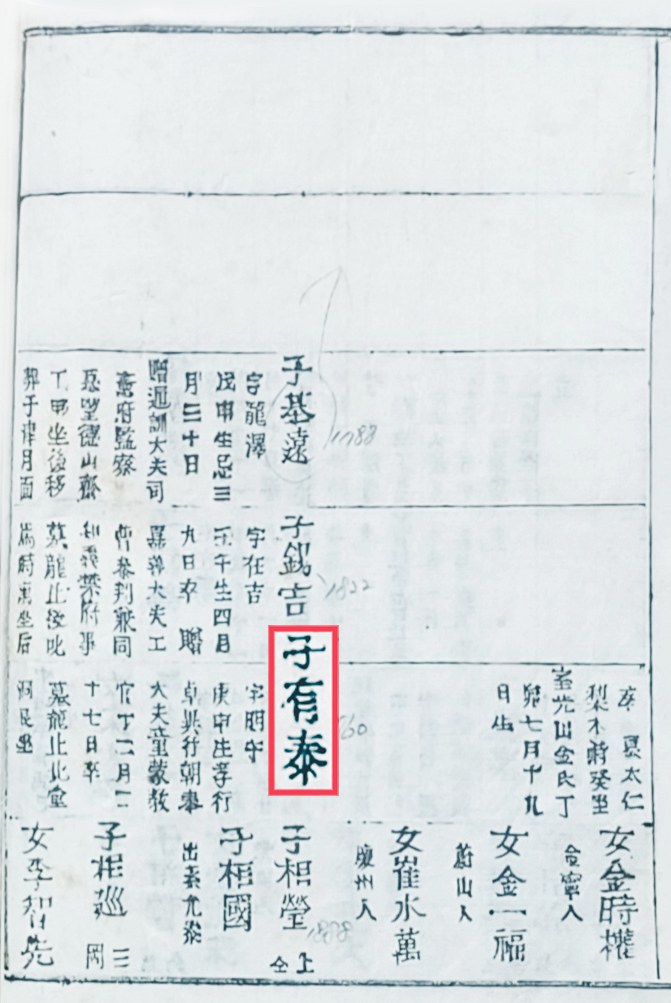 子基遠
1788
字龍澤
戊申生忌三
月三十日
贈通訓大夫司
憲府監察
墓望德山齋
丁甲坐後移
葬于律月面
子錫吉
1822
字在吉
壬午生四月
九日卒 贈
嘉善大夫工
曹參判兼同
知義禁府事
墓龍止後
坐后
卒 墓太仁
梨木嶝癸坐
室光山金氏丁
卯七月十九
日生
子有泰
60
字明守
庚申生孝行
卓異行朝奉
大夫童蒙敎
官丁二月二
十七日卒
墓龍止北金
洞艮坐
女金時權
金寧人
女金一福
蔚山人
女崔水萬
州人
子相瑩
1888
上仝
子相國
出系允泰
子相巡
三岡
女李智先